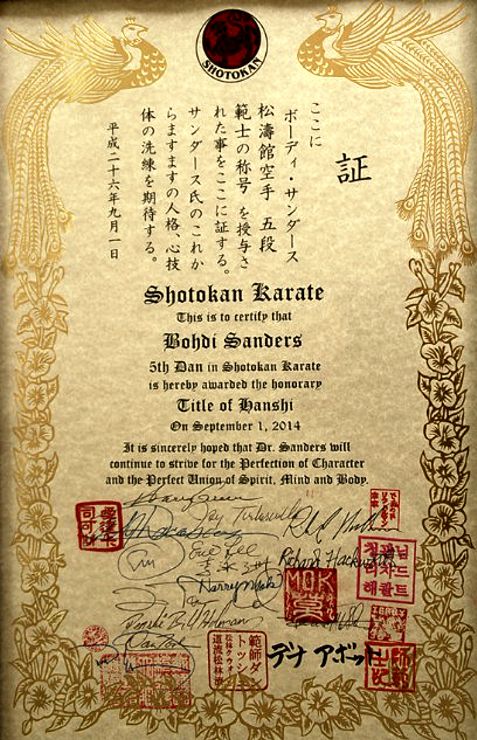 SHOTOKAN
証
ここに
ボーディ・サンダース
松濤館空手 五段
範士の称号を授与さ
れた事をここに証する。
サンダース氏のこれか
らますますの人格、心技
体の洗練を期待する。
平成二十六年九月一日
Shotokan Karate
This is to certify that
Bohdi Sanders
5th Dan in Shotokan Karate
is hereby awarded the honorary
Title of Hanshi
On September 1, 2014
It is sincerely hoped that Dr. Sanders will
continue to strive for the Perfection of Character
and the Perfect Union of Spirit, Mind and Body.
MOK
청관님
리차드
해콜트
範師ダ
トッシ
松林クウォ
道流松林派
デナ アボット